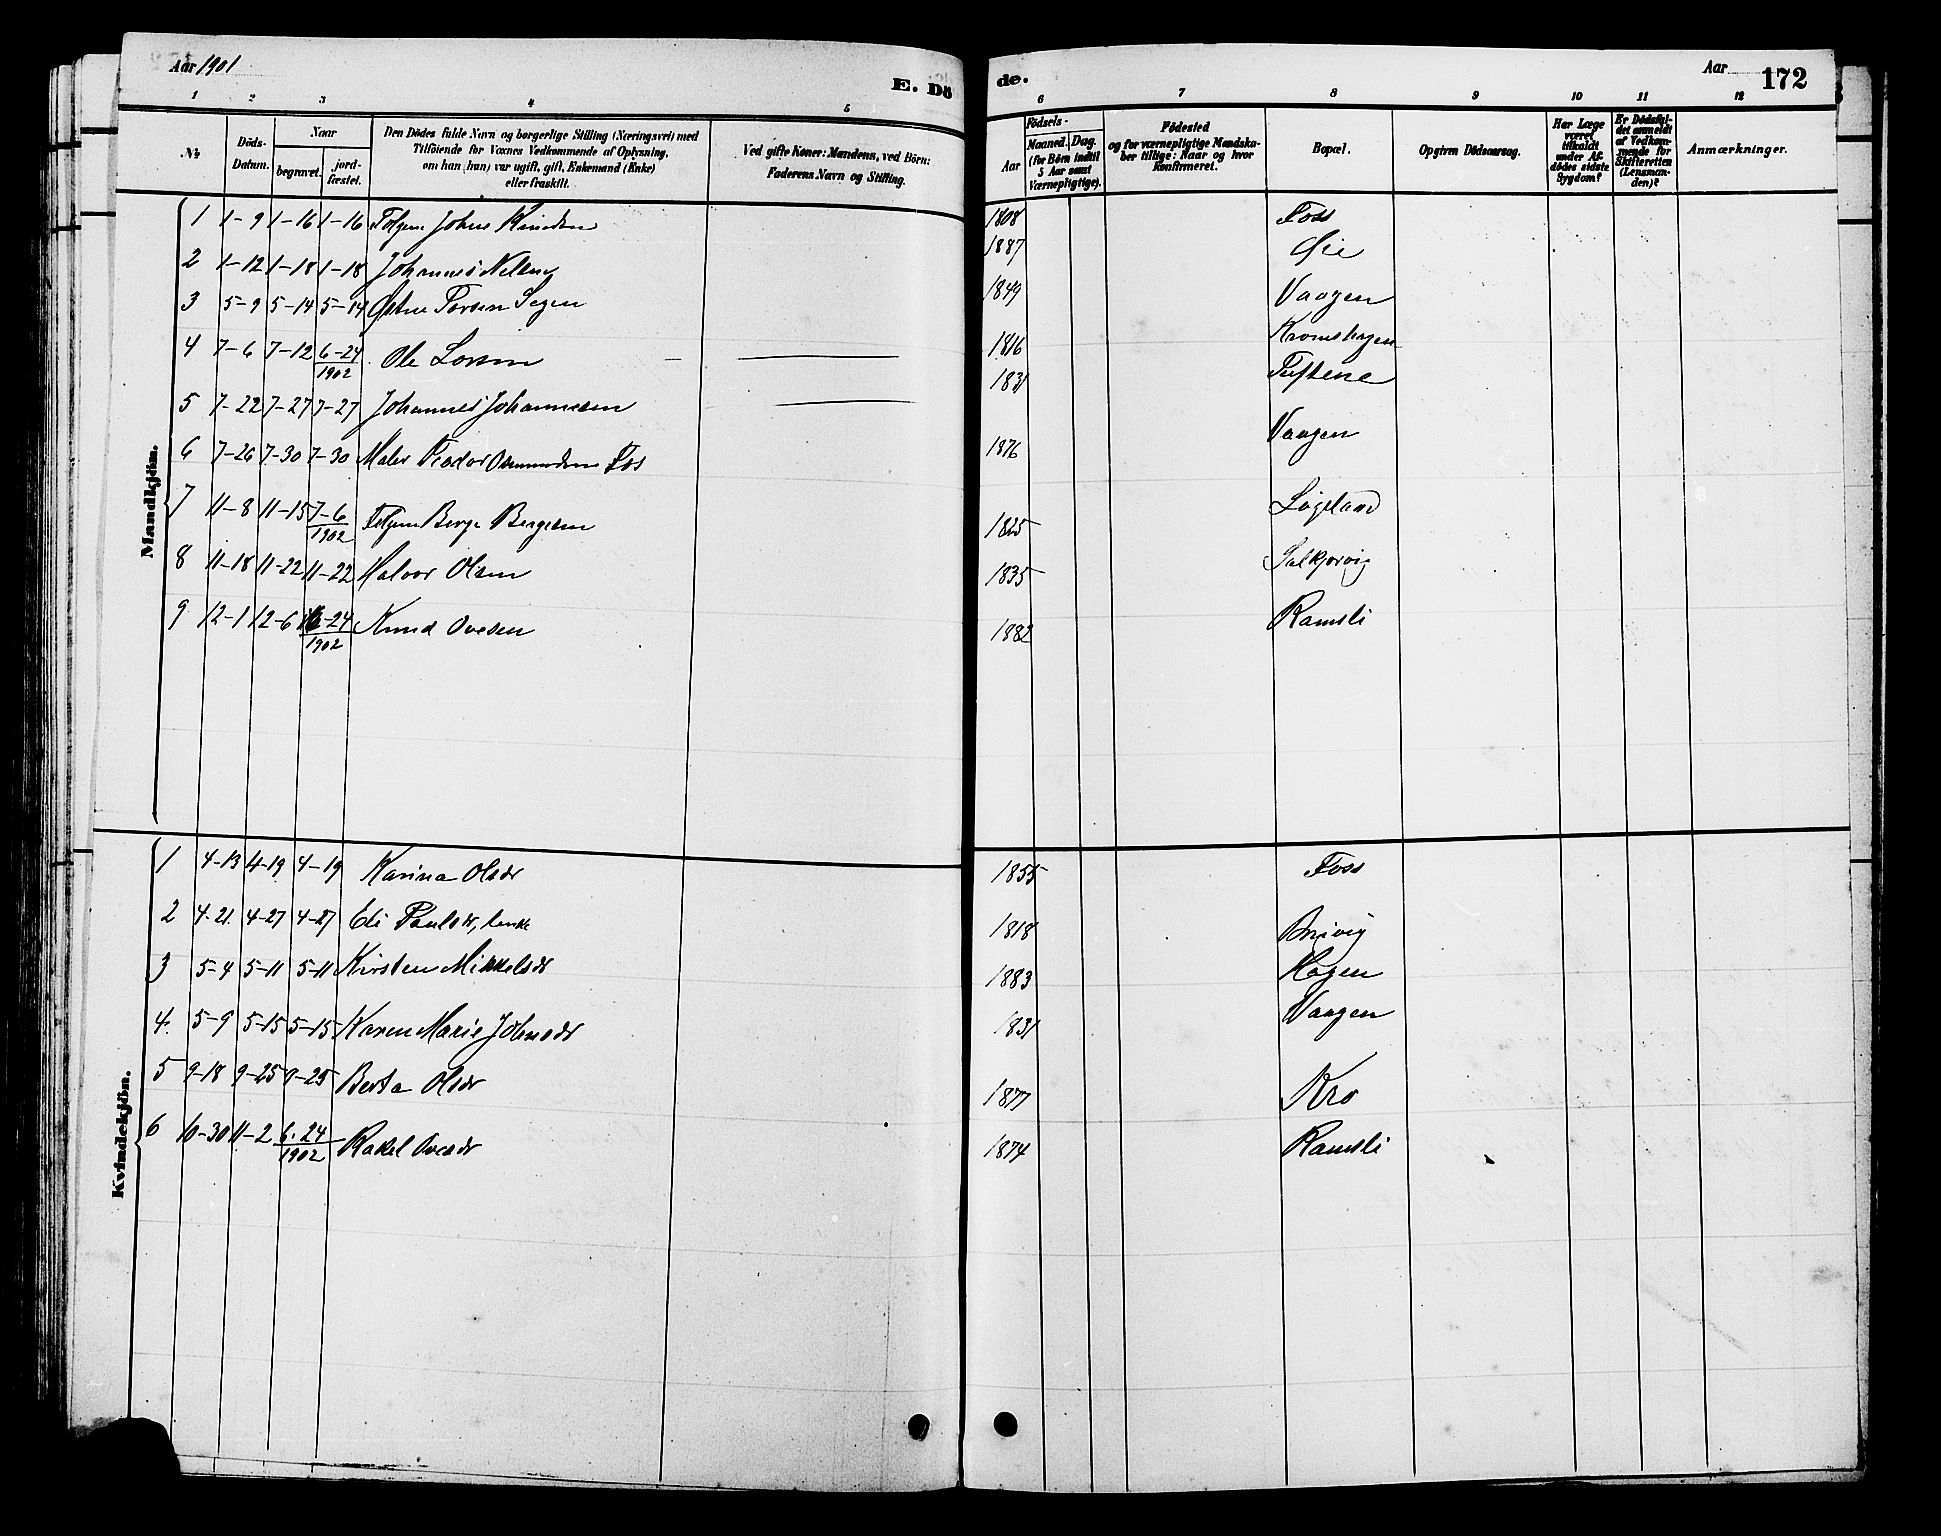 Aar 1901
E. Dö
de.
Aar
172
1 2 3 4 5
6 7 8 9 10 11 12
№
Döds-
Datum.
Naar
begravet.
jord-
fæstet.
Den Dödes fulde Navn og borgerlige Stilling (Næringsvei) med
Tilföiende for Voxnes Vedkommende af Oplysning,
om han (hun) var ugift, gift, Enkemand (Enke)
eller fraskilt.
Ved gifte Koner: Mandens, ved Börn:
Faderens Navn og Stilling.
Födsels-
Aar
Maaned. Dag.
(for Börn indtil
5 Aar samt
Værnepligtige).
Födested
og for værnepligtige Mandska-
ber tillige: Naar og hvor
konfirmeret.
Bopæl.
Opgiven Dödsaarsag.
Har Læge
været
tilkaldt
under Af-
dödes sidste
Sygdom?
Er Dödsfal-
det anmeldt
af Vedkom-
mende for
Skifteretten
(Lensman-
den)?
Anmærkninger.
Mandkjön.
1 1-9 1-16 1-16 Knudsen 1808 Foss
2 1-12 1-18 1-18 Johannes 1887 Øie
3 5-9 5-14 5-14 1849 Vaagen
4 7-6 7-12 6-24/1902 Ole 1816
5 7-22 7-27 7-27 Johannes Johannesen 1831 Tuftene
6 7-26 7-30 7-30 Maler Teodor Osmundsen Fos 1876 Vaagen
7 11-8 11-15 7-6/1902 Berge Bergesen 1825 Løgeland
8 11-18 11-22 11-22 Halvor Olsen 1835
9 12-1 12-6 6-24/1902 Knud Ovesen 1882 Ramsli
Kvindekjön.
1 4-13 4-19 4-19 Karina Olsdr 1855 Foss
2 4-21 4-27 4-27 Eli Paulsdr, 1818
3 5-4 5-11 5-11 Kirsten Mikkelsdr 1883 Hagen
4. 5-9 5-15 5-15 Karen Marie Johnsdr 1831 Vaagen
5 9-18 9-25 9-25 Berta Olsdr 1877 Kro
6 10-30 11-2 6-24/1902 Rakel Ovesdr 1874 Ramsli